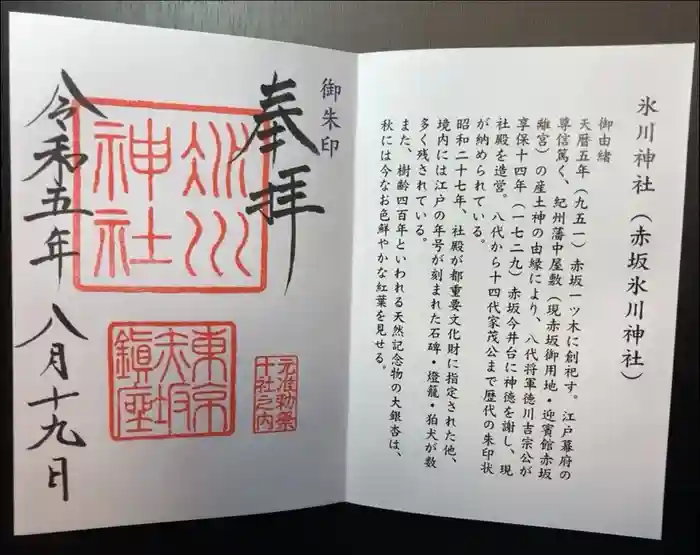 氷川神社（赤坂氷川神社）
御由緒
天暦五年（九五一）赤坂一ツ木に創祀す。江戸幕府の
尊信篤く、紀州藩中屋敷（現赤坂御用地・迎賓館赤坂
離宮）の産土神の由縁により、八代将軍徳川吉宗公が
享保十四年（一七二九）赤坂今井台に神徳を謝し、現
社殿を造営。八代から十四代家茂公まで歴代の朱印状
が納められている。
昭和二十七年、社殿が都重要文化財に指定された他、
境内には江戸の年号が刻まれた石碑・燈籠・狛犬が数
多く残されている。
また、樹齢四百年といわれる天然記念物の大銀杏は、
秋には今なお色鮮やかな紅葉を見せる。
御朱印
奉拝
氷川
神社
元准勅祭
十社之内
東京
赤坂
鎮座
令和五年
八月十九日